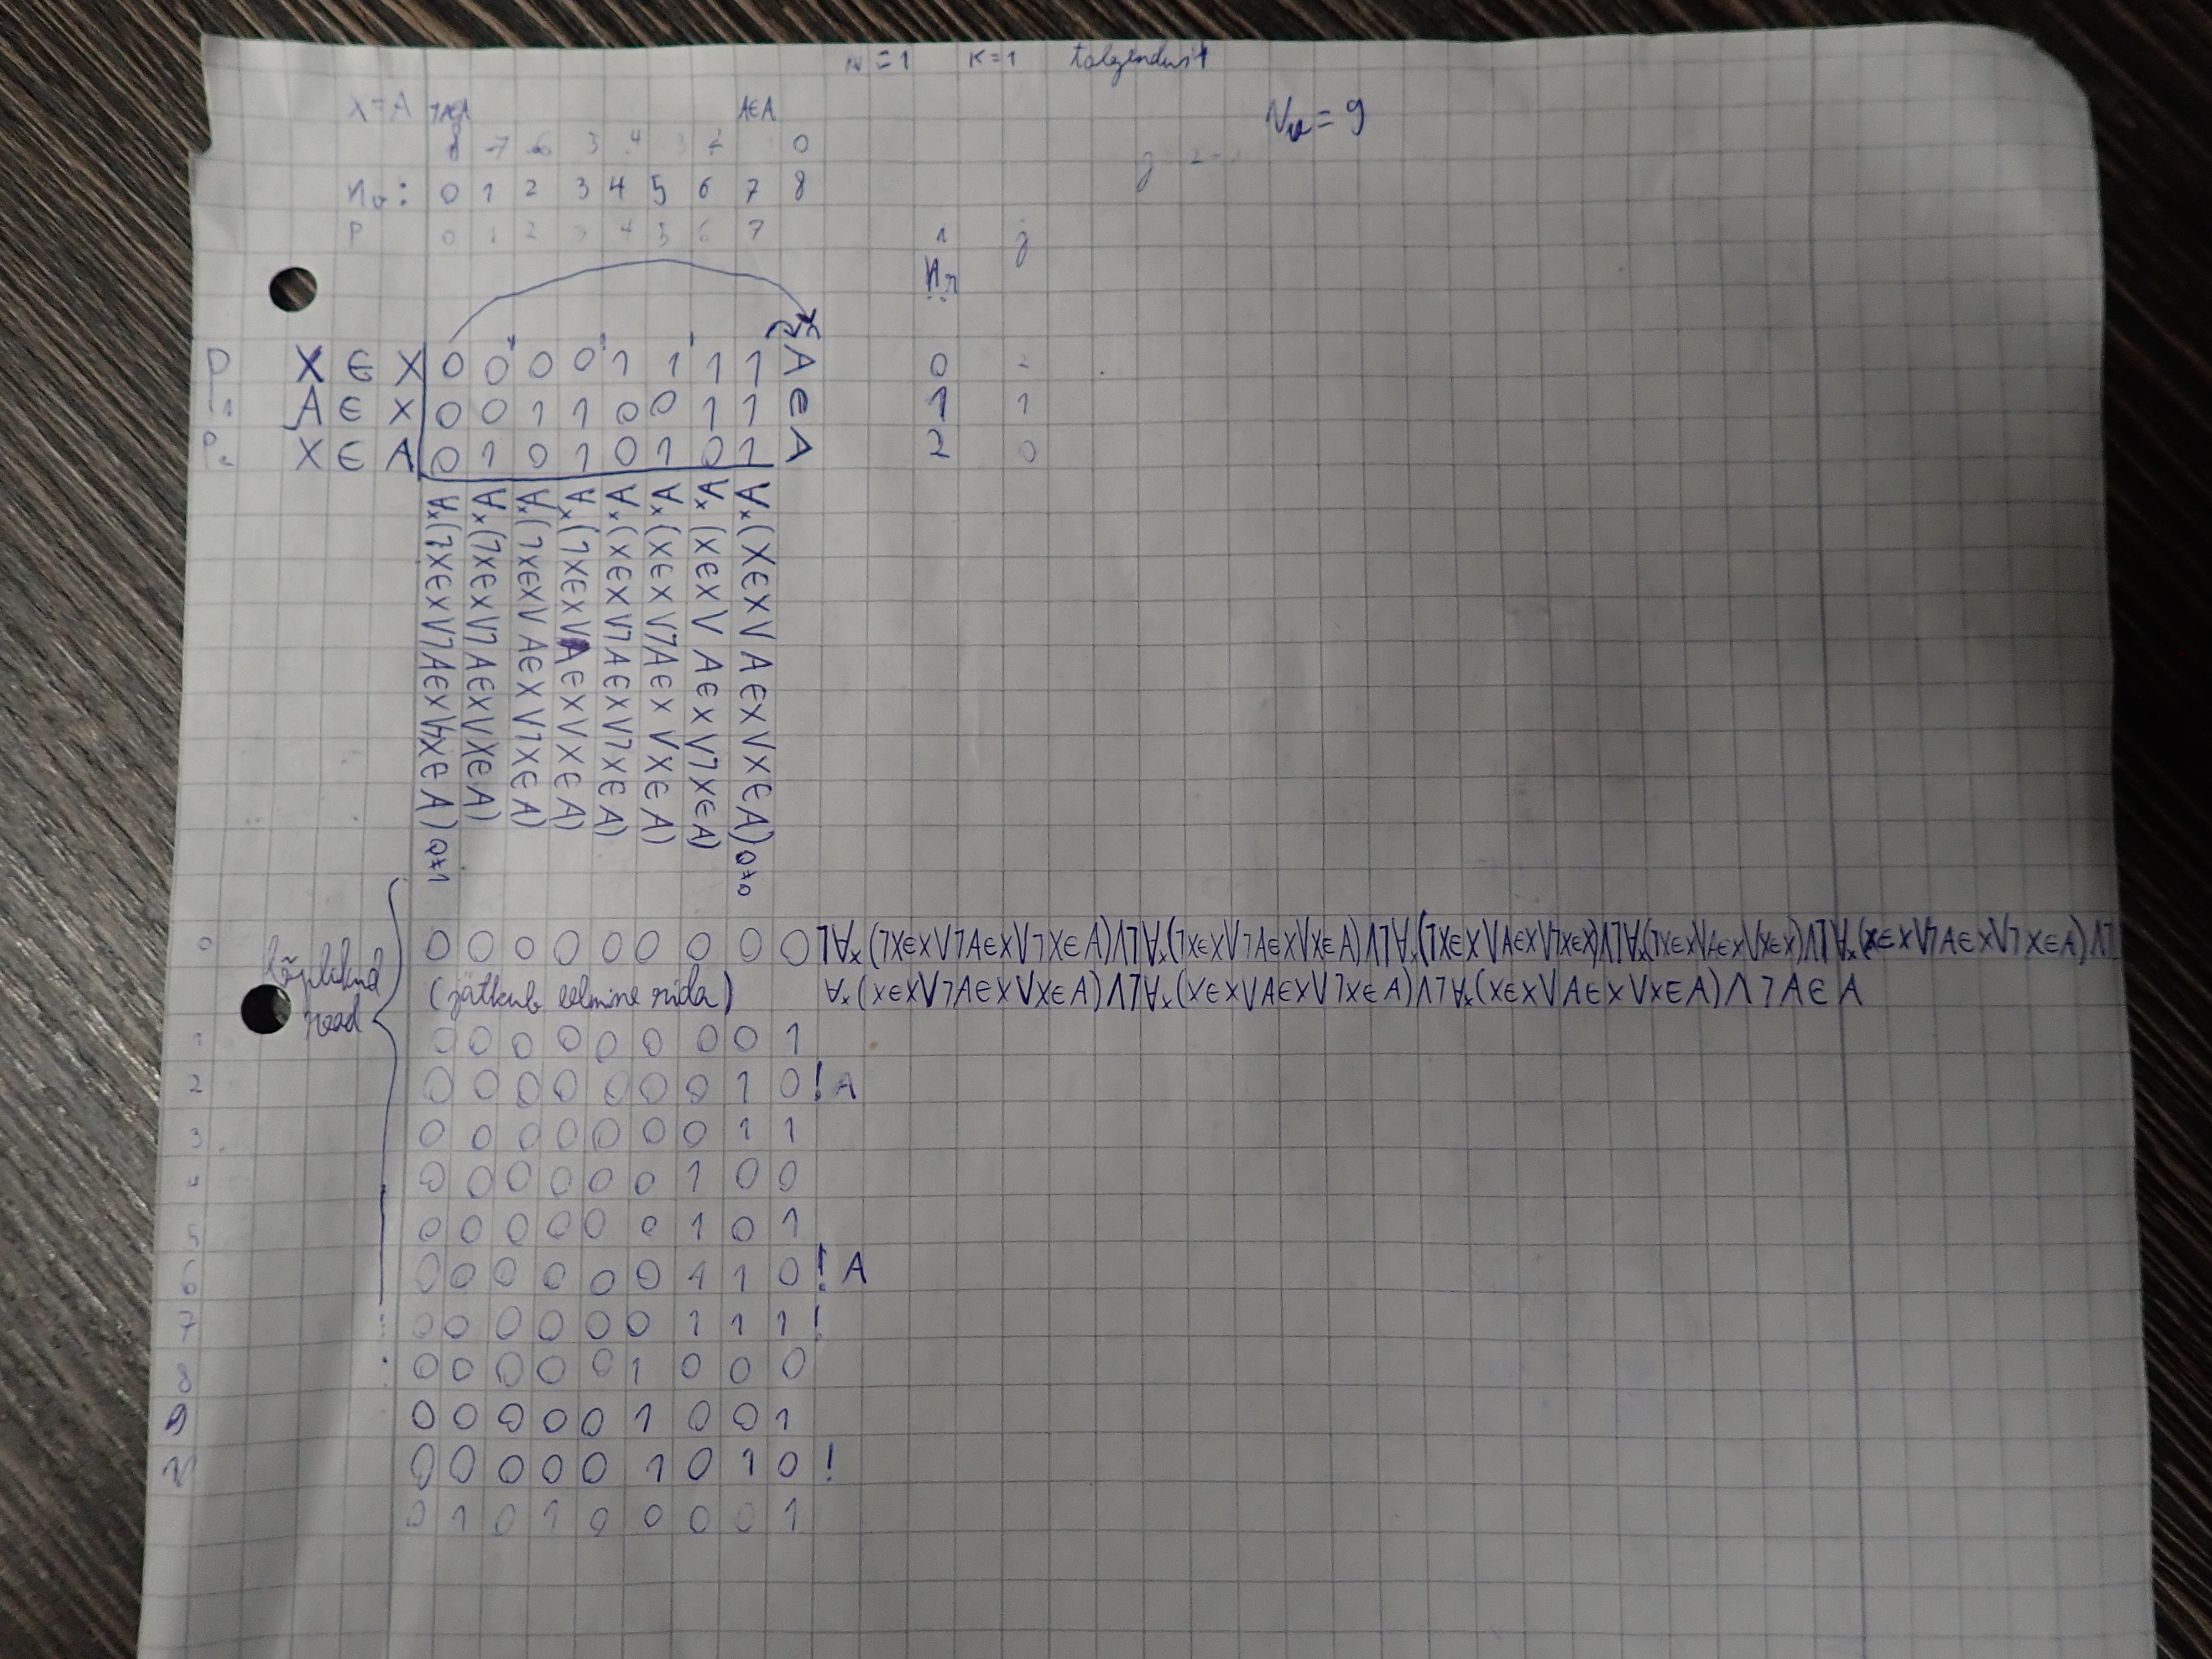 N=1 K=1 tõlgendust
X=A ¬A∈A A∈A
Nv = 9
8 7 6 5 4 3 2 0
Nv: 0 1 2 3 4 5 6 7 8
P 0 1 2 3 4 5 6 7
i j
P X ∈ X 0 0 0 0 1 1 1 1 A 0 2
P1 A ∈ X 0 0 1 1 0 0 1 1 ∈ 1 1
P2 X ∈ A 0 1 0 1 0 1 0 1 A 2 0
∀x(¬X∈X∨¬A∈X∨¬X∈A) Q=1
∀x(¬X∈X∨¬A∈X∨X∈A)
∀x(¬X∈X∨A∈X∨¬X∈A)
∀x(¬X∈X∨A∈X∨X∈A)
∀x(X∈X∨¬A∈X∨¬X∈A)
∀x(X∈X∨¬A∈X∨X∈A)
∀x(X∈X∨A∈X∨¬X∈A)
∀x(X∈X∨A∈X∨X∈A) Q=0
lõplikud read
0 0 0 0 0 0 0 0 0 0 ¬∀x(¬X∈X∨¬A∈X∨¬X∈A)∧¬∀x(¬X∈X∨¬A∈X∨X∈A)∧¬∀x(¬X∈X∨A∈X∨¬X∈X)∧¬∀x(¬X∈X∨A∈X∨X∈X)∧¬∀x(X∈X∨¬A∈X∨¬X∈A)∧¬
(jätkub eelmine rida) ∀x(X∈X∨¬A∈X∨X∈A)∧¬∀x(X∈X∨A∈X∨¬X∈A)∧¬∀x(X∈X∨A∈X∨X∈A)∧¬A∈A
1 0 0 0 0 0 0 0 0 1
2 0 0 0 0 0 0 0 1 0 ! A
3 0 0 0 0 0 0 0 1 1
4 0 0 0 0 0 0 1 0 0
5 0 0 0 0 0 0 1 0 1
6 0 0 0 0 0 0 1 1 0 ! A
7 0 0 0 0 0 0 1 1 1 !
8 0 0 0 0 0 1 0 0 0
9 0 0 0 0 0 1 0 0 1
10 0 0 0 0 0 1 0 1 0 !
0 1 0 1 0 0 0 0 1